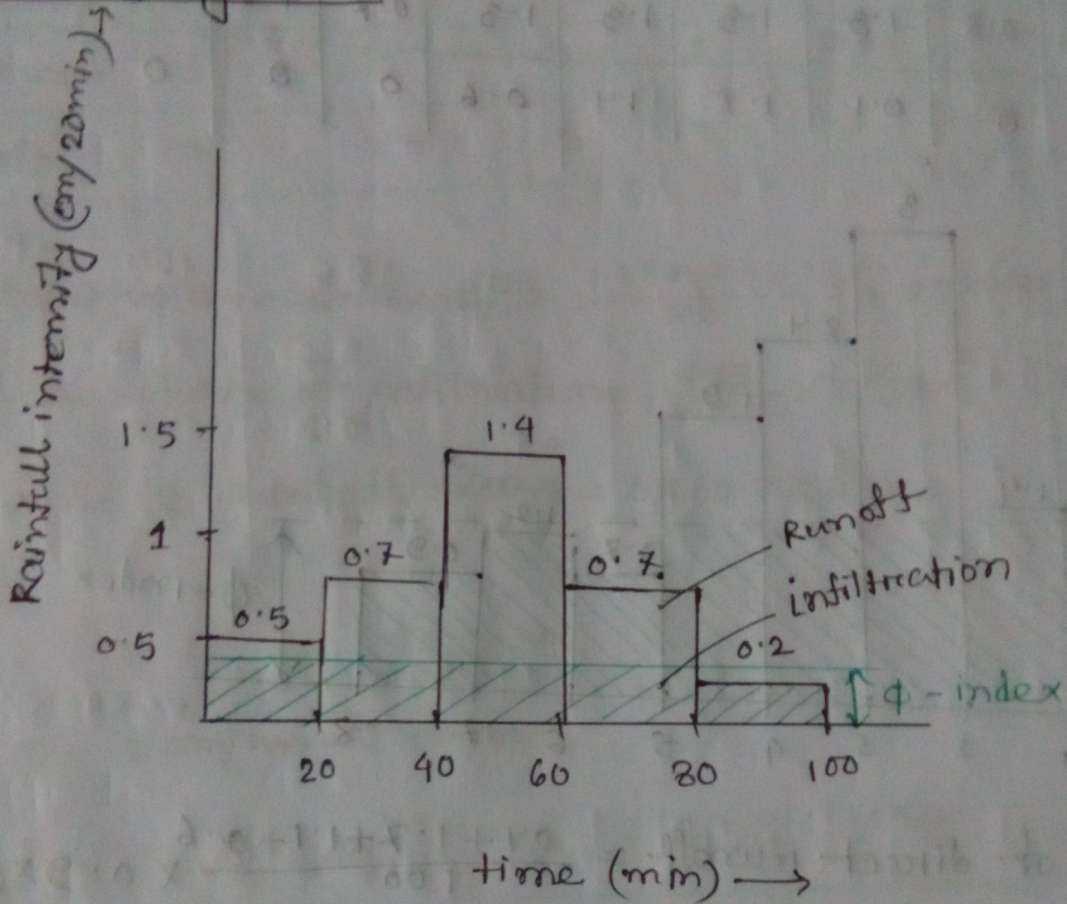 Rainfall intensity (cm/20min)→
1.5
1
0.5
0.5
0.7
1.4
0.7
0.2
Runoff
infiltration
ϕ-index
20 40 60 80 100
time (min) →